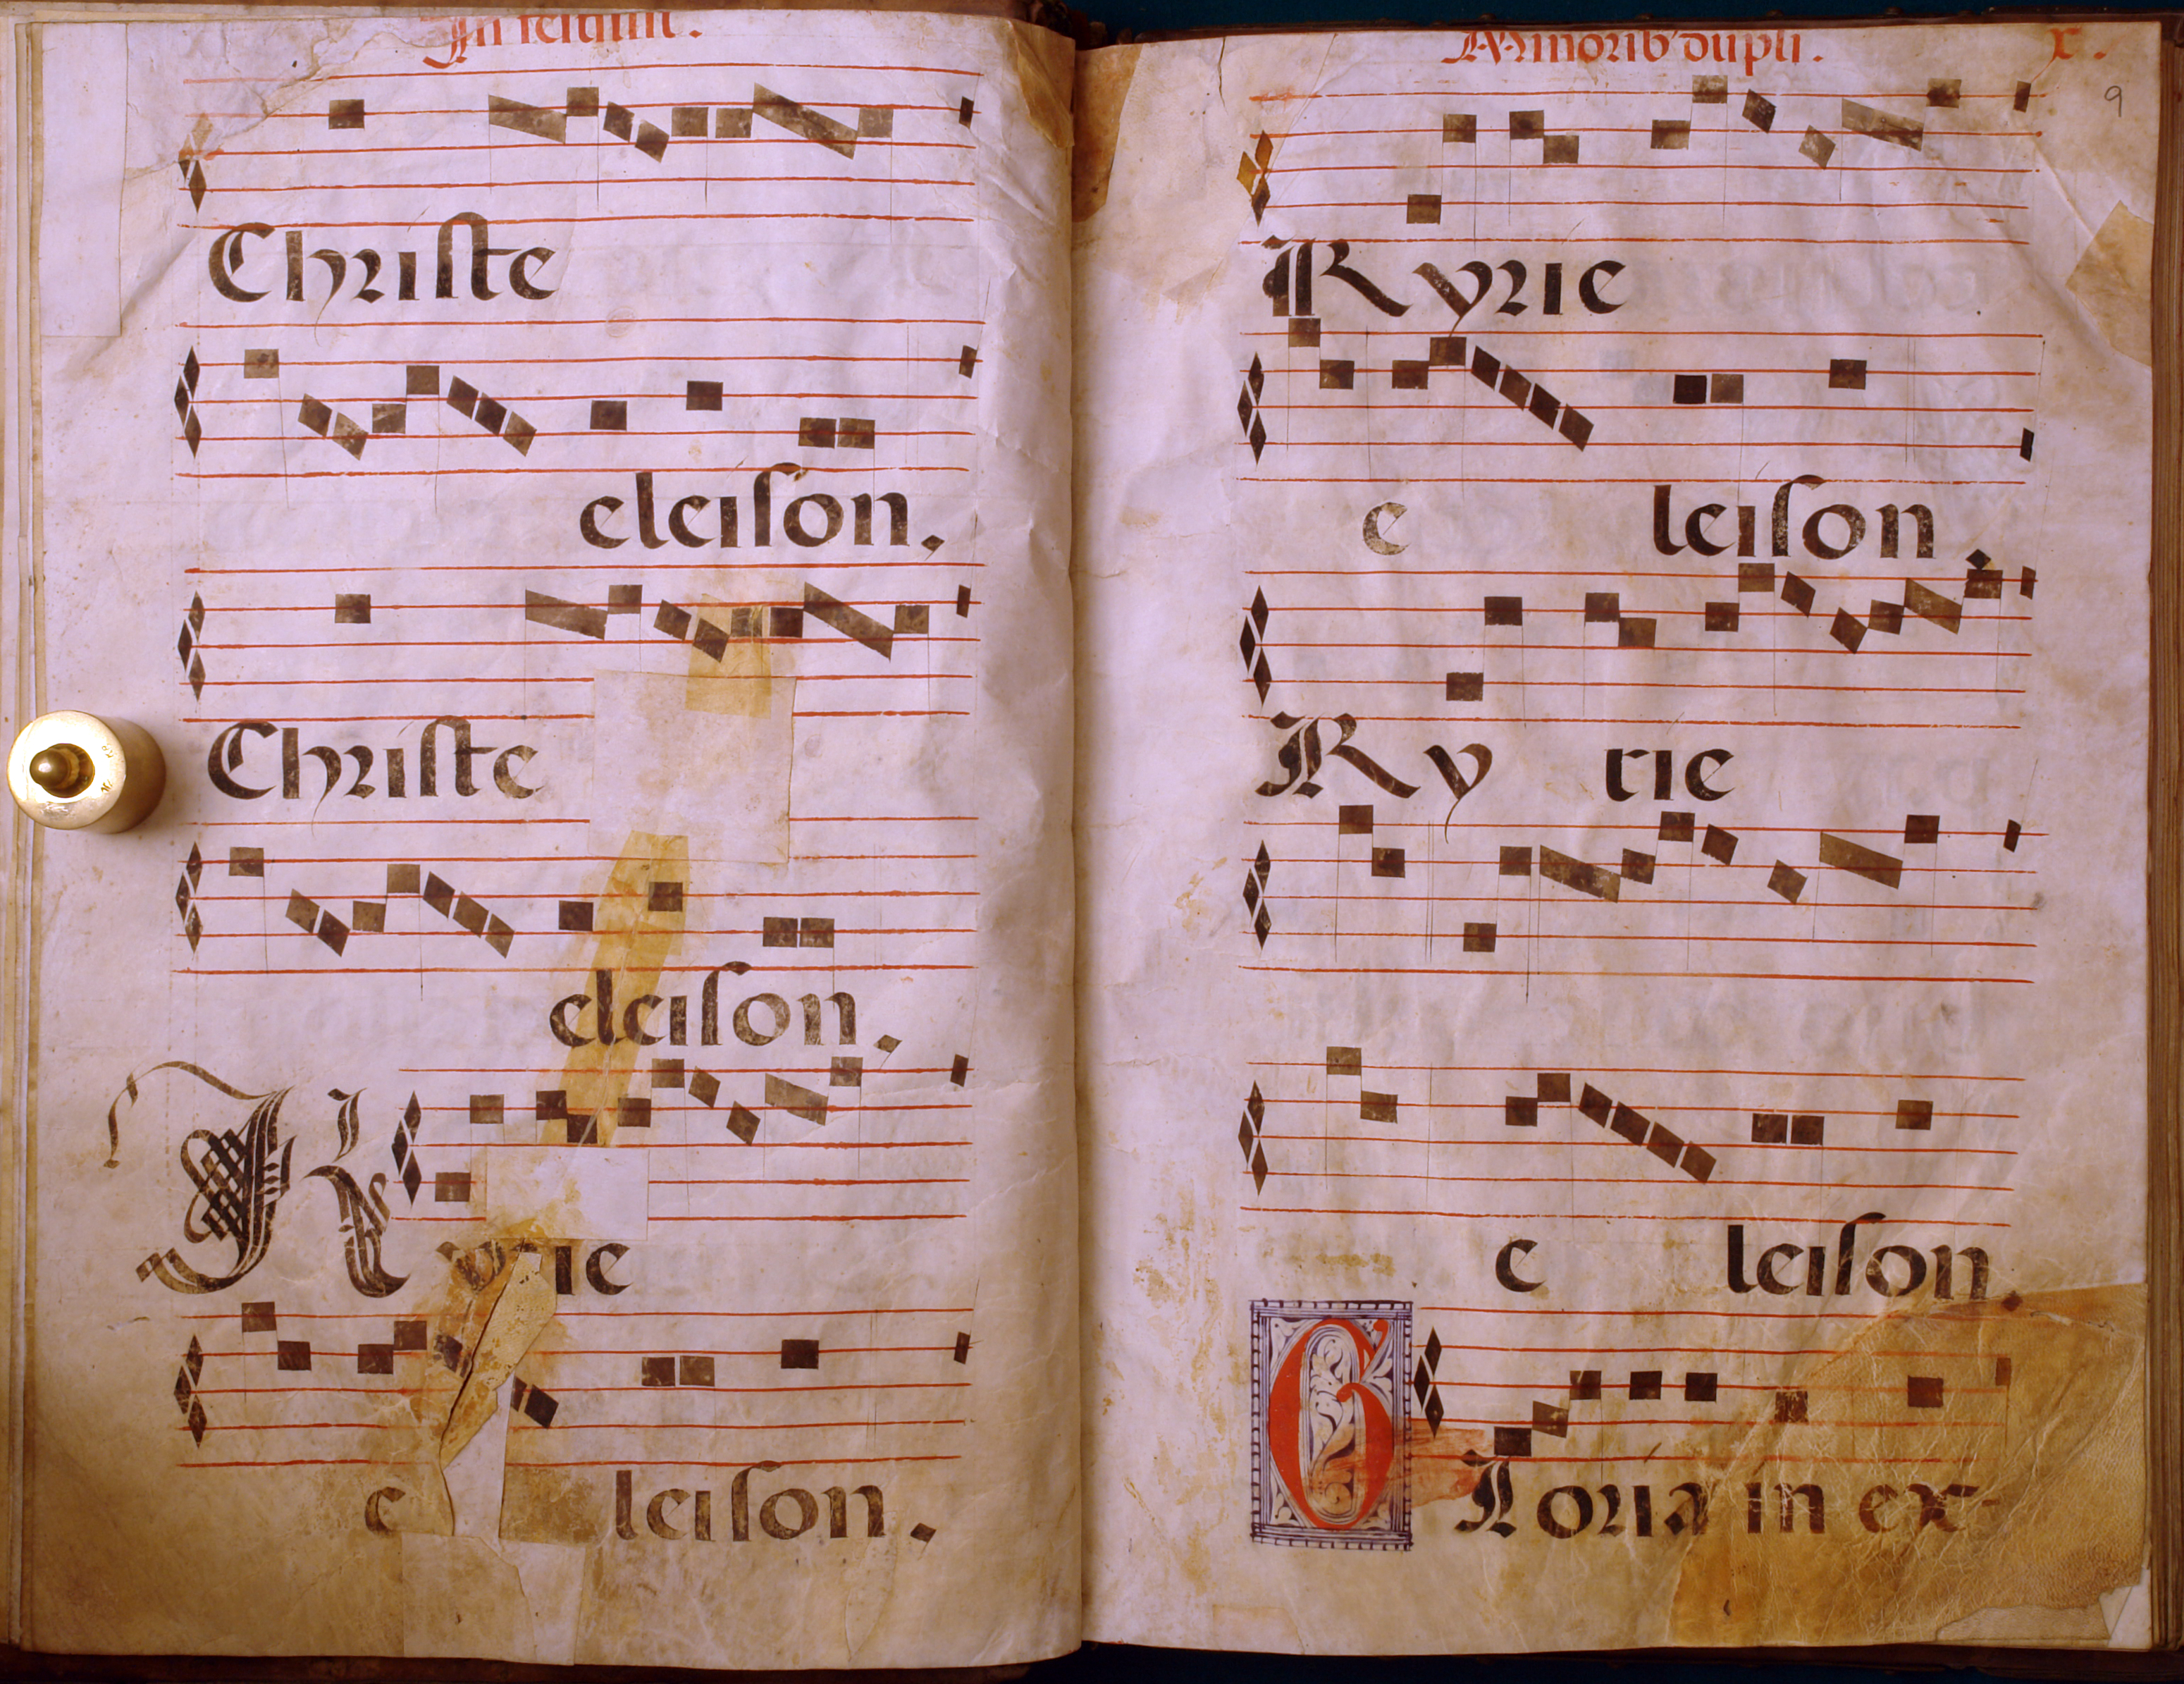 In festiui.
Christe
eleison.
Christe
eleison.
Kyrie
e leison.
Minorib' dupli. x.
9
Kyrie
e leison.
Ky rie
e leison.
Gloria in ex-